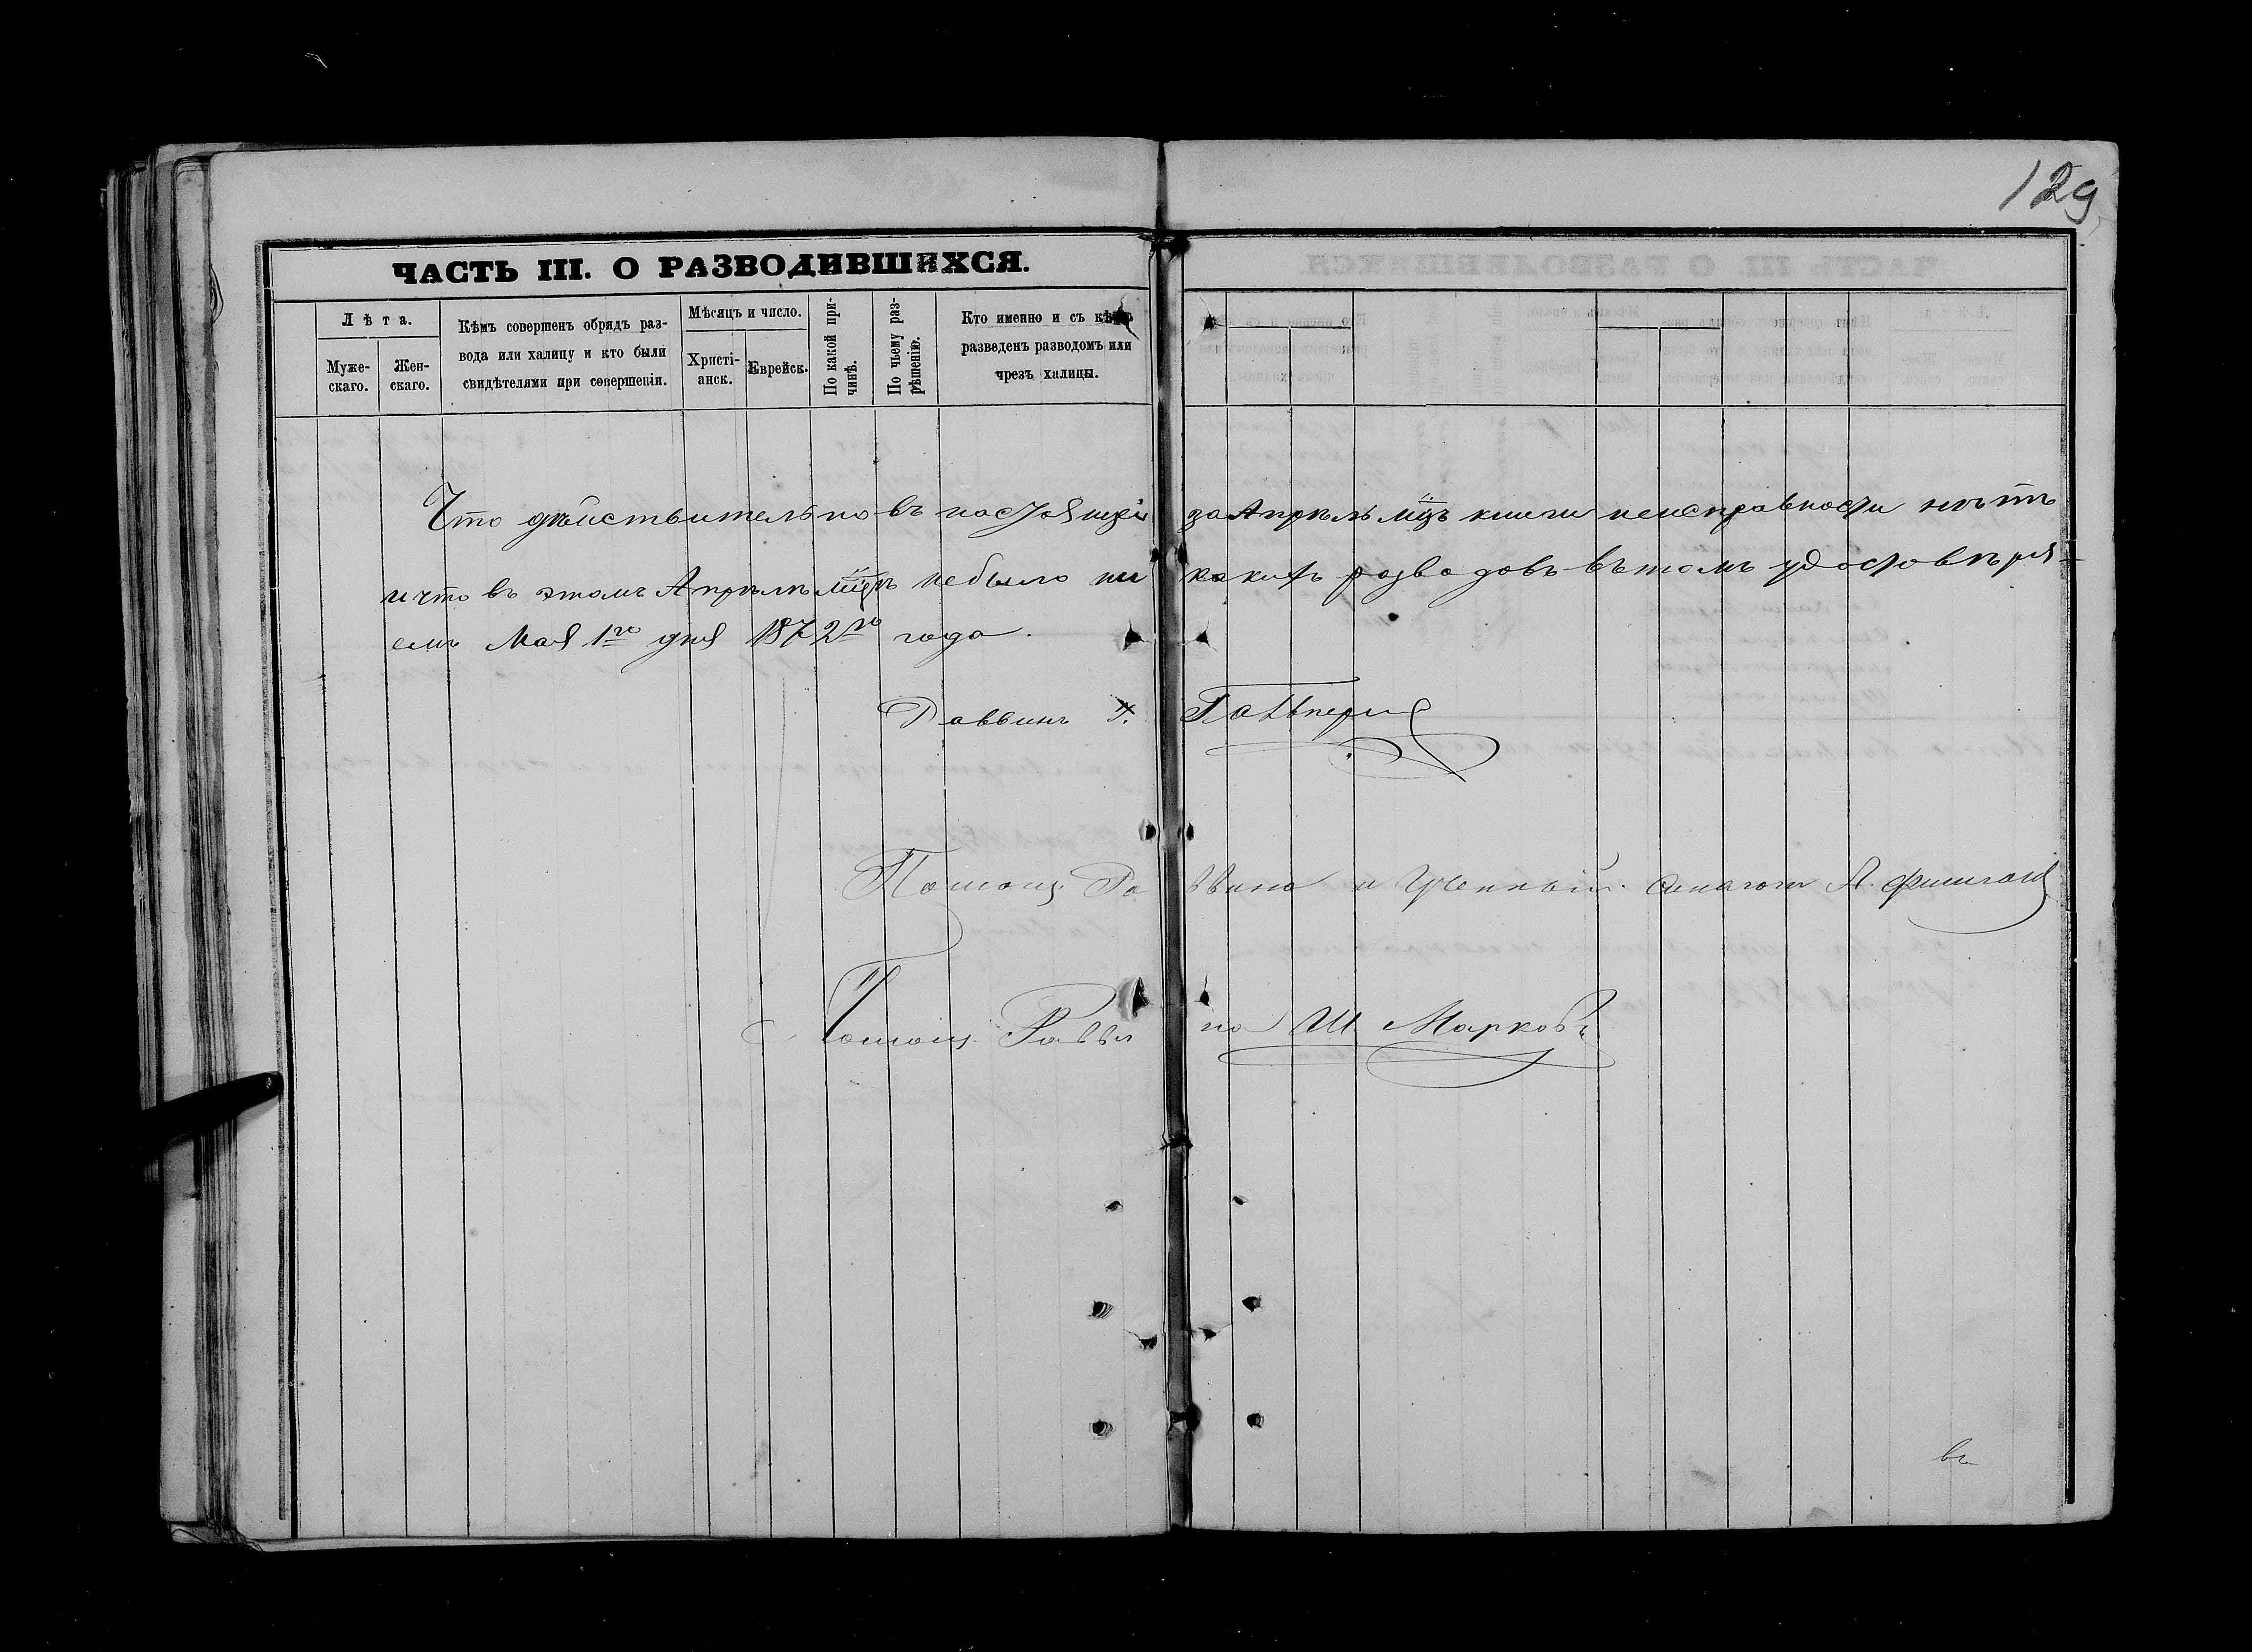 129
ЧАСТЬ III. О РАЗВОДИВШИХСЯ.
Лѣта.
Муже-
скаго.
Жен-
скаго.
Кѣмъ совершенъ обрядъ раз-
вода или халицу и кто были
свидѣтелями при совершеніи.
Мѣсяцъ и число.
Христі-
анск.
Еврейск.
По какой при-
чинѣ.
По чьему раз-
рѣшенію.
Кто именно и съ кѣмъ
разведенъ разводомъ или
чрезъ халицы.
Что дѣйствительно въ настоящей за Апрѣль мцъ книги неисправности нѣтъ
и что въ этомъ Апрѣлѣ мцѣ небыло ни какихъ разводовъ вътомъ удостовѣря-
емъ Мая 1го дня 1872го года.
Раввинъ
Помощ. Раввина и Ученный
Помощ. Раввина Ш Марковъ